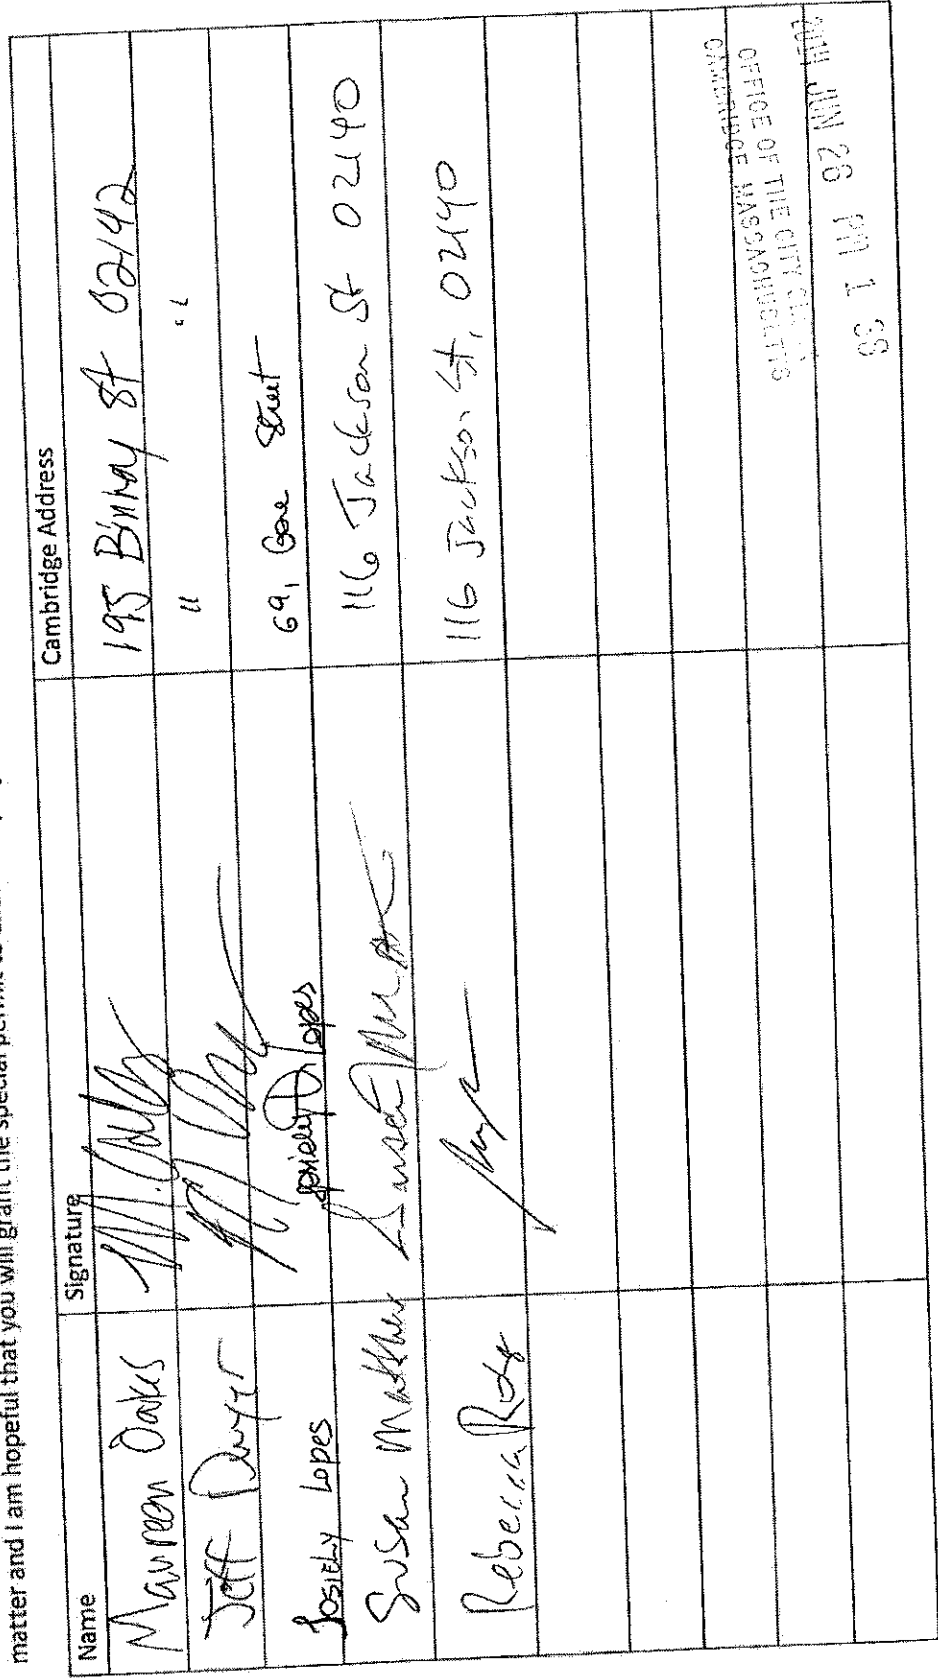 matter and I am hopeful that you will grant the special permit to
Name Signature Cambridge Address
Maureen Oakes 195 Binney St 02142
Jeff " "
Josiely Lopes Josiely Lopes 69, Gore Street
Susan Matthew Susan 116 Jackson St 02140
Rebecca 116 Jackson St, 02140
OFFICE OF THE CITY
CAMBRIDGE MASSACHUSETTS
JUN 26 PM 1